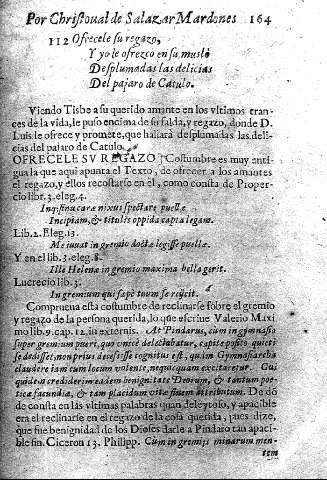 Por Christoual de Salazar Mardones 164
112 Ofrecele su regazo,
Y yo le ofrezco en su muslo
Desplumadas las delicias
Del pajaro de Catulo.
Viendo Tisbe a su querido amante en los vltimos trances
de la vida, le puso encima de su falda, y regazo, donde D.
Luis le ofrece y promete, que hallarà desplumadas las delicias
del pajaro de Catulo.
OFRECELE SV REGAZO] Costumbre es muy antigua
la que aqui apunta el Texto, de ofrecer a los amantes
el regazo, y ellos recostarse en el, como consta de Propercio
libr. 3. eleg. 4.
Inq; sinu caræ nixus spectare puellæ
Incipiam, & titulis oppida capta legam.
Lib. 2. Eleg. 13.
Me iuuat in gremio doctæ legisse puellæ.
Y en el lib. 3. eleg. 8.
Ille Helenæ in gremio maxima bella gerit.
Lucrecio lib. 3.
In gremium qui sæpè tuum se reijcit.
Comprueua esta costumbre de reclinarse sobre el gremio
y regazo de la persona querida, lo que escriue Valerio Maximo
lib. 9. cap. 12. in externis. At Pindarus, cum in gymnasio
super gremium pueri, quo vnicè delectabatur, capite posito quieti
se dedisset, non prius decessisse cognitus est, quàm Gymnasiarcha
claudere iam eum locum volente, nequicquam excitaretur. Cui
quidem crediderim eadem benignitate Deorum, & tantum poeticæ
facundiæ, & tam placidum vitæ finem attributum. De dõde
consta en las vltimas palabras quan deleytoso, y apacible
era el reclinarse en el regazo de la cosa querida, pues dize,
que fue benignidad de los Dioses darle a Pindaro tan apacible
fin. Ciceron 13. Philipp. Cùm in gremijs mimarum mentum